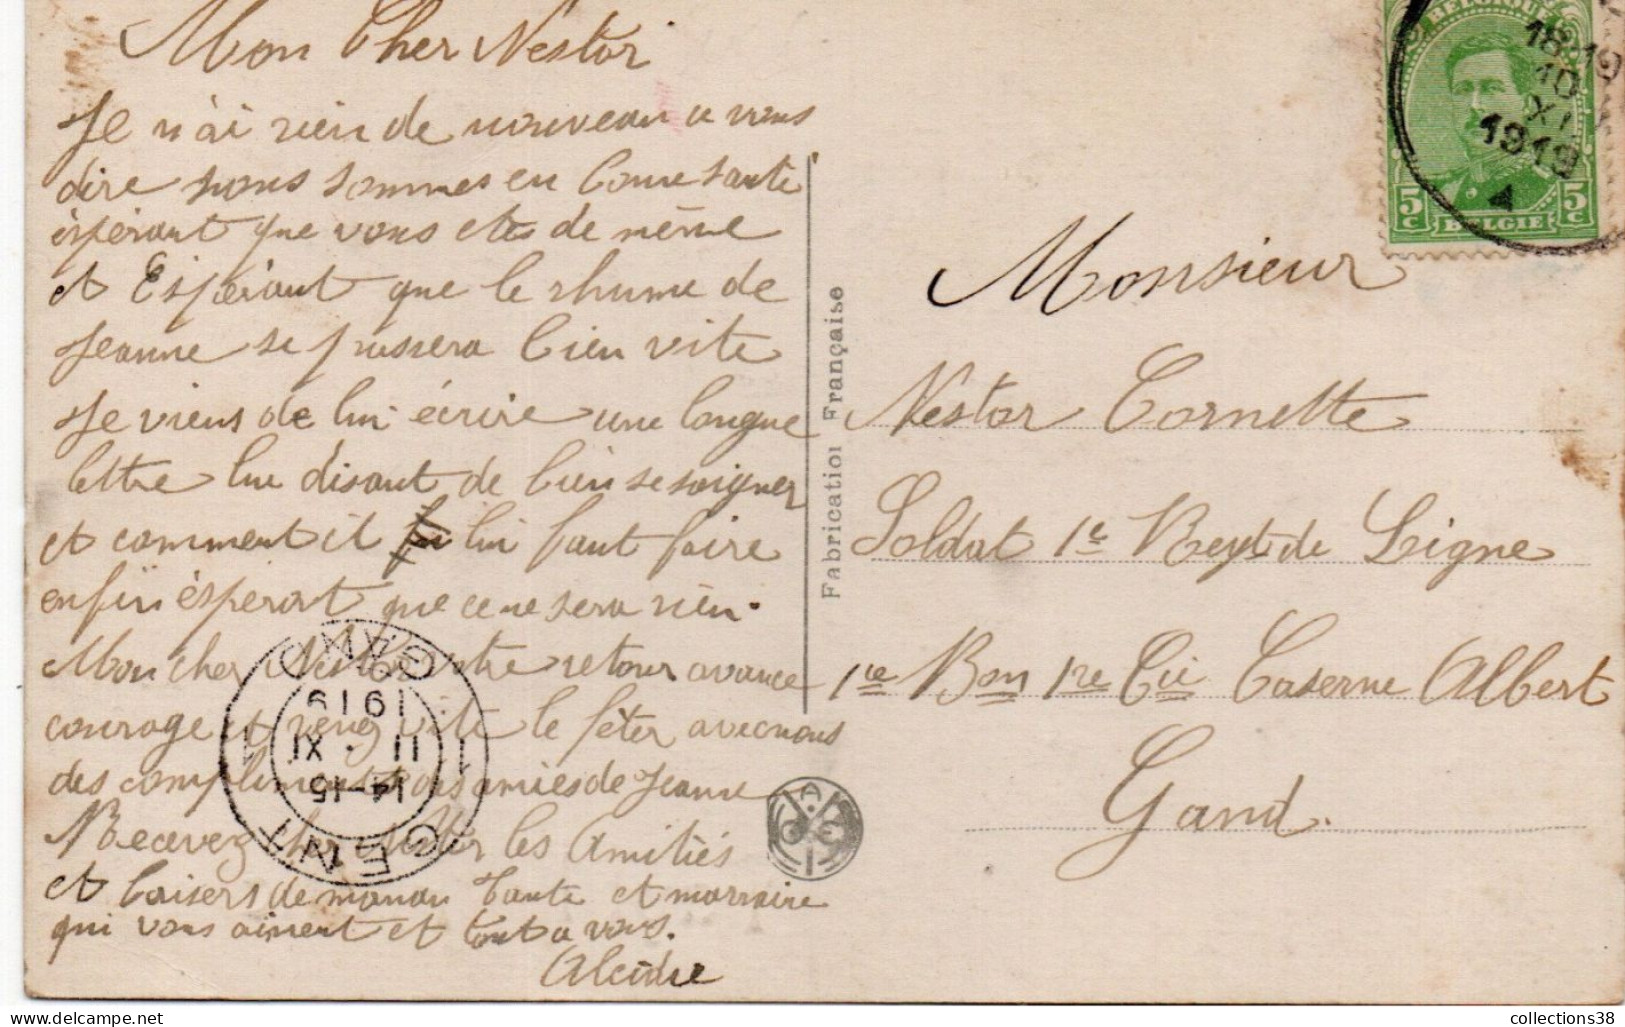 Mon Cher Nestor
Je n'ai rien de nouveau a vous
dire nous sommes en bonne santé
èspérant que vous etes de même
et Espèrant que le rhume de
Jeanne se passera bien vite
Je viens de lui écrire une longue
lettre lui disant de bien se soigner
et comment il lui faut faire
enfin èsperant que ce ne sera rièn.
Mon cher Nestor votre retour avance
courage et venez vite le fêter avec nous
des compliments des amies de Jeanne
Recevez cher Nestor les Amitiés
et baisers de maman tante et marraine
qui vous aiment et tout a vous.
Alcidie
GAND
1919
11 XI
14-15
1 1
GENT
Fabrication Française
BELGIQUE
5c 5c
BELGIË
18-19
10
XI
1919
A
Monsieur
Nestor Cornette
Soldat 1e Regt de Ligne
1ie Bon 1re Cie Caserne Albert
Gand.
collections38